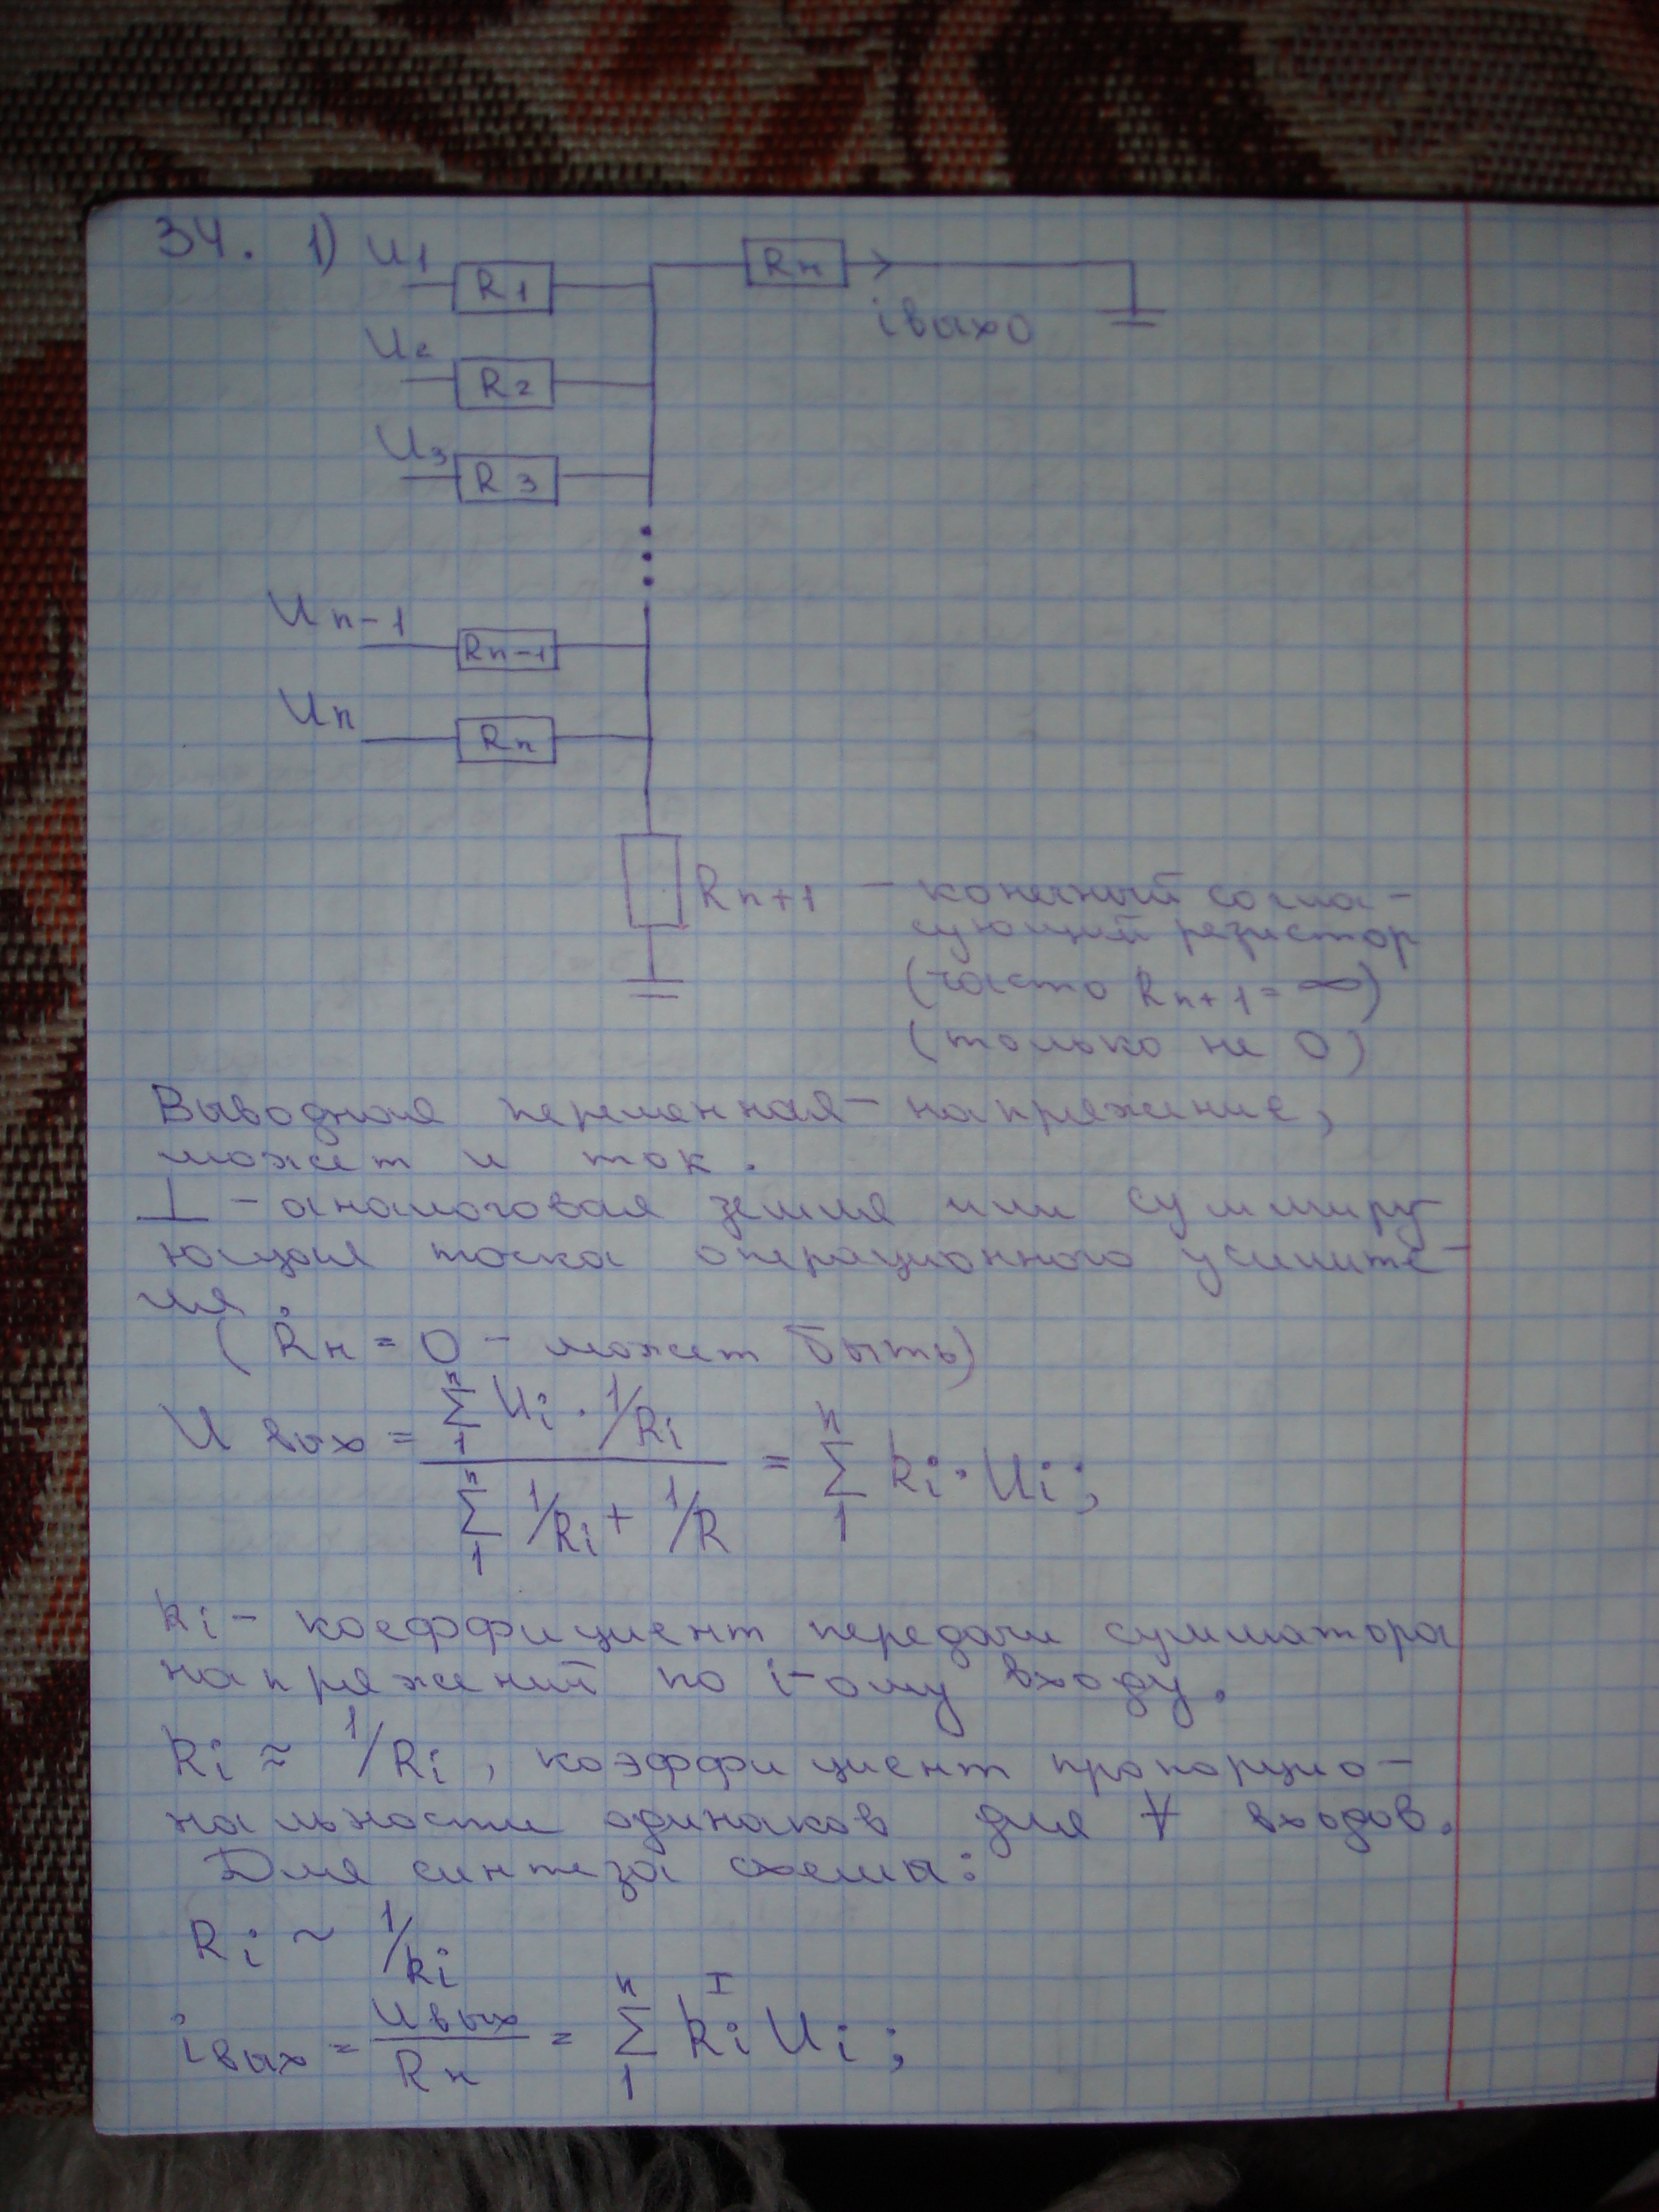 34. 1) U1
R1
Rн
iвых0
U2
R2
U3
R3
Un-1
Rn-1
Un
Rn
Rn+1 – конечный согла-
сующий резистор
(часто Rn+1 = ∞)
(только не 0)
Выводная переменная – напряжение,
может и ток.
⊥ – аналоговая земля или суммиру-
ющая точка операционного усилите-
ля.
(Rн = 0 – может быть)
Uвых = (∑₁ⁿ Ui · 1/Ri) / (∑₁ⁿ 1/Ri + 1/R) = ∑₁ⁿ ki · Ui;
ki – коеффициент передачи сумматора
напряжений по i-ому входу.
ki ≈ 1/Ri, коэффициент пропорцио-
нальности одинаков для ∀ входов.
Для синтеза схемы:
Ri ~ 1/ki
iвых = Uвых/Rн = ∑₁ⁿ kiᴵ Ui;